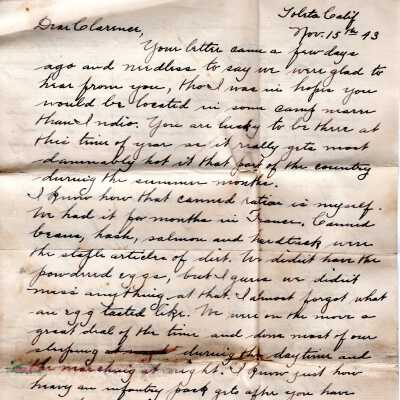 Tolita Calif
Nov. 15th 43
Dear Clarence,
Your letter came a few days
ago and needless to say we were glad to
hear from you, tho I was in hopes you
would be located in some camp nearer
than Indio. You are lucky to be there at
this time of year as it really gets most
damnably hot it that part of the country
during the summer months.
I know how that canned ration is myself.
We had it for months in France. Canned
beans, hash, salmon and hardtack were
the staple articles of diet. We didn't have the
powdered eggs, but I guess we didn't
miss anything at that. I almost forgot what
an egg tasted like. We were on the move a
great deal of the time and done most of our
sleeping during the daytime and
the marching at night. I know just how
heavy an infantry pack gets after you have